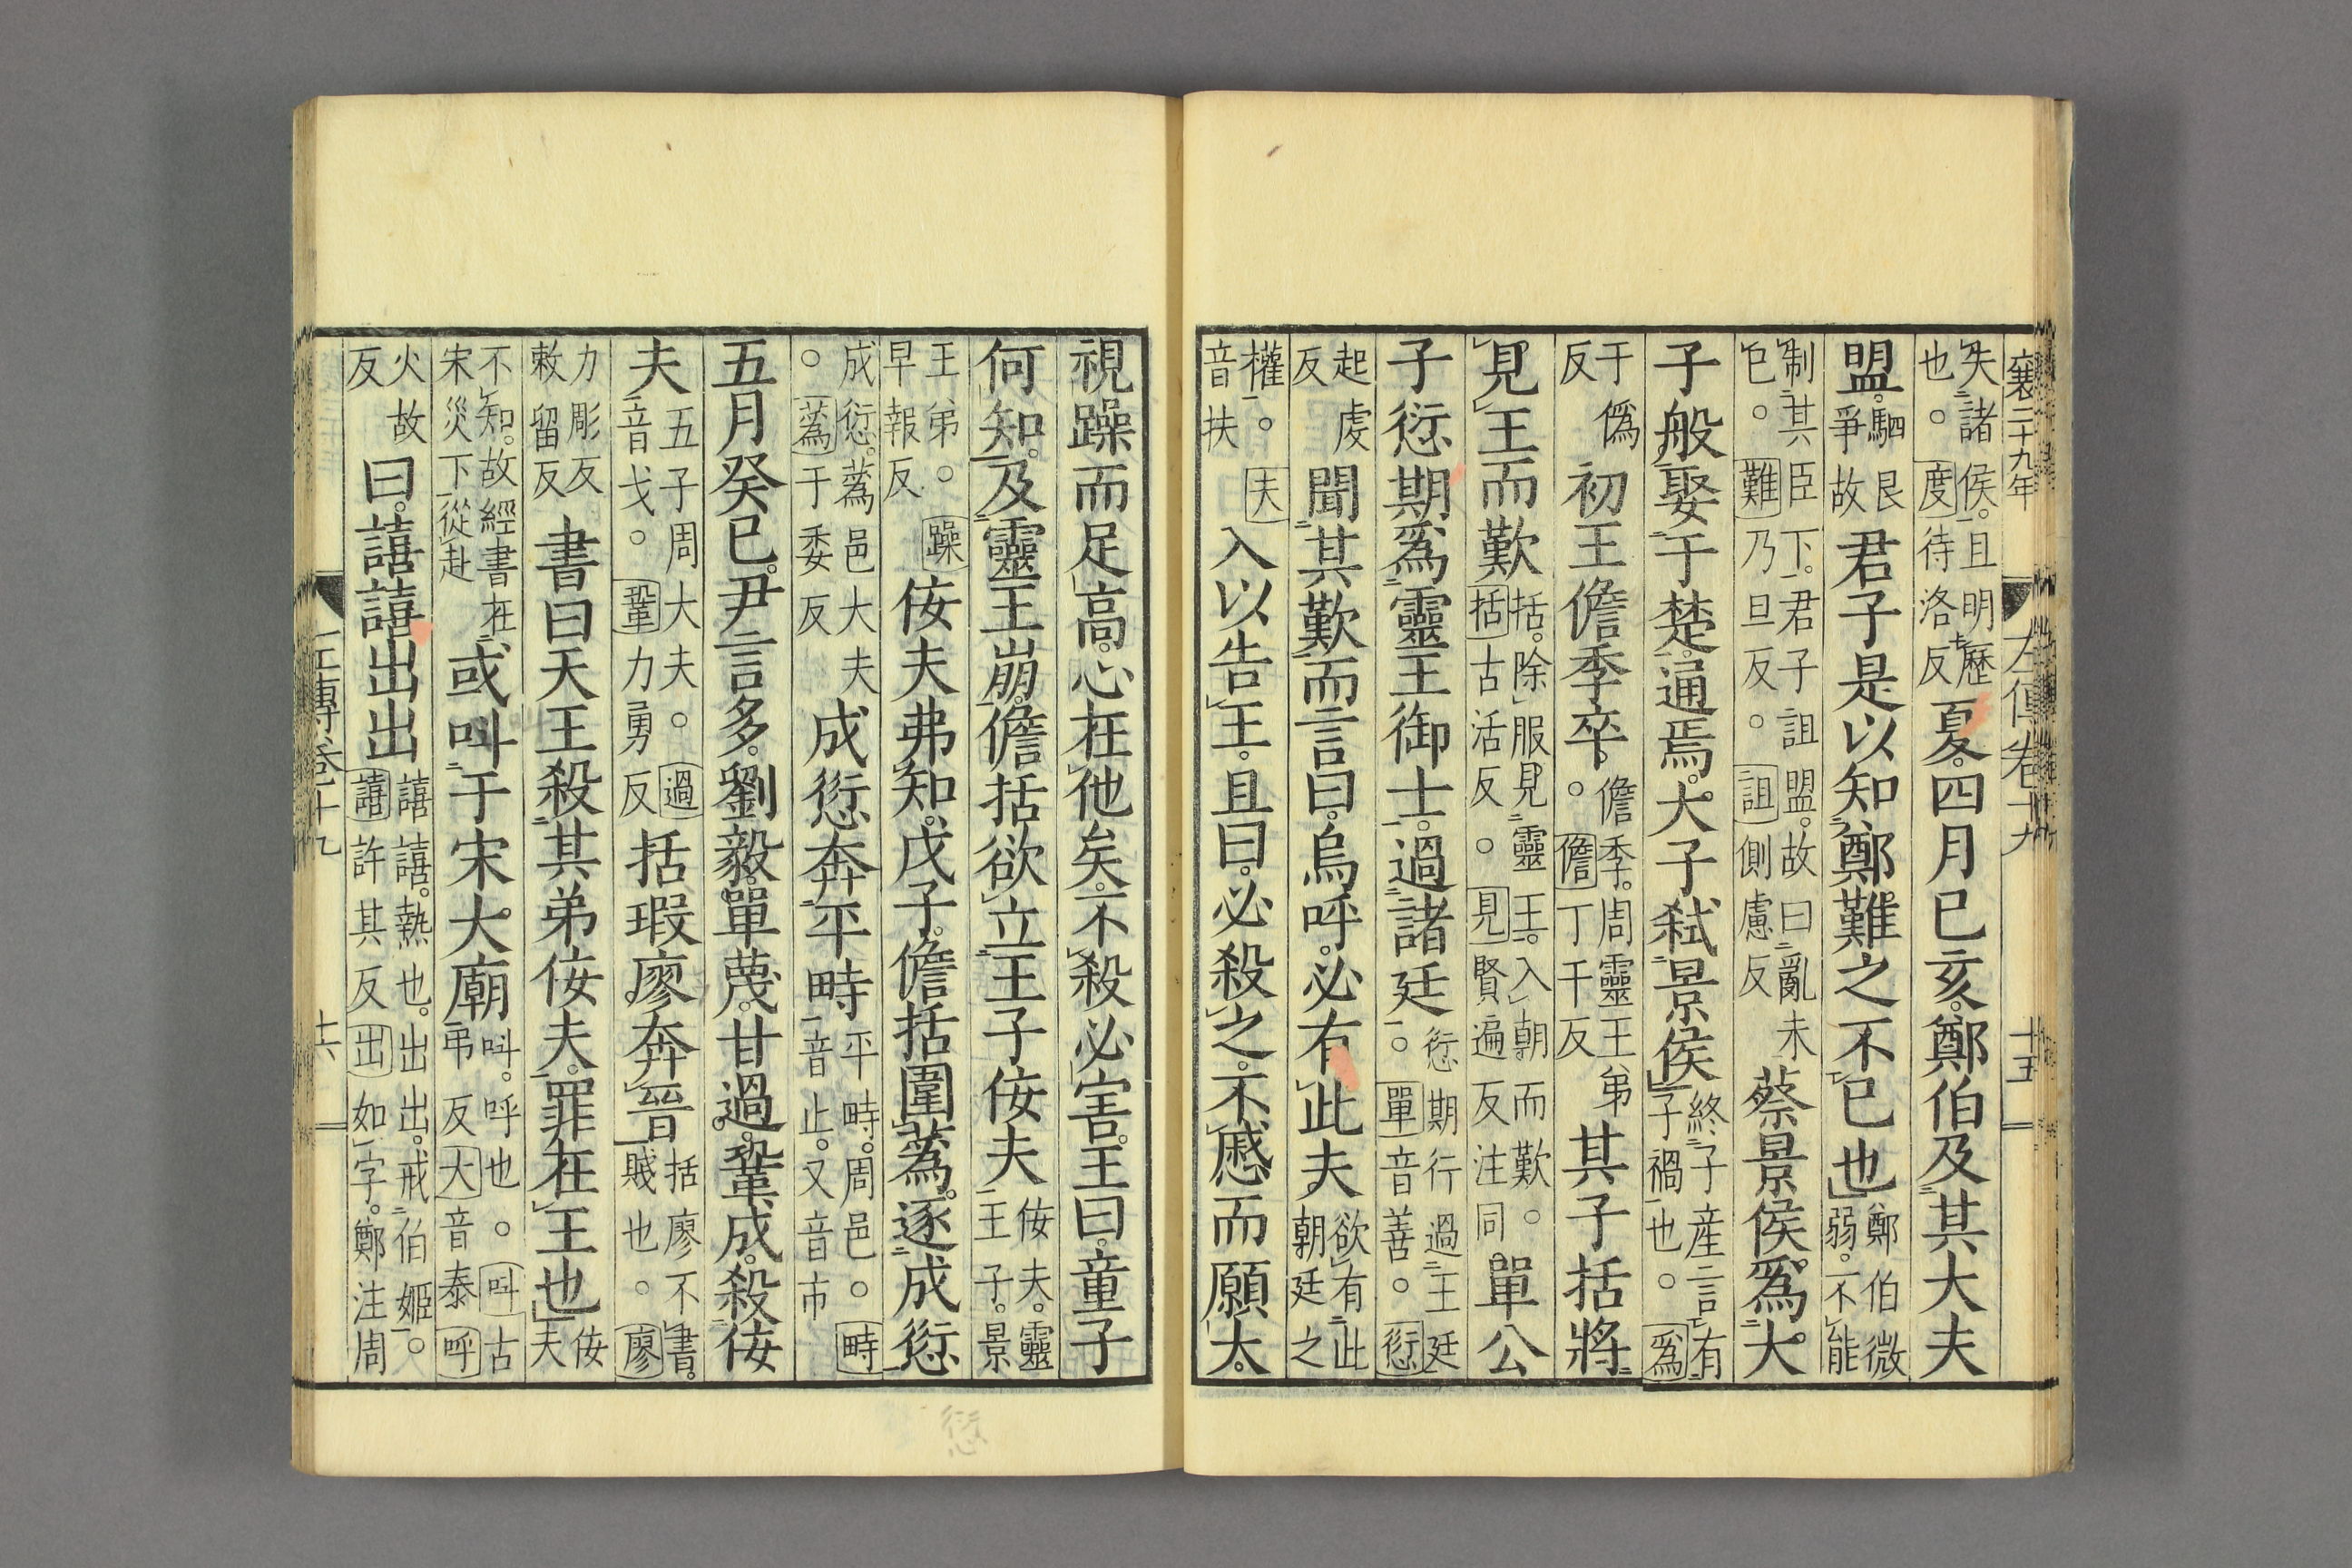 襄二十九年 左傳卷十九 十五
失諸侯且明歷也。度待洛反夏四月已亥鄭伯及其大夫
盟駟艮爭故君子是以知鄭難之不已也鄭伯微弱不能
制其臣下君子詛盟故曰亂未已。難乃旦反。詛側慮反蔡景侯爲大
子般娶于楚通焉大子弑景侯終子産言有子禍也。爲
于僞反初王儋季卒儋季周靈王弟。儋丁干反其子括將
見王而歎括除服見靈王入朝而歎。括古活反。見賢遍反注同單公
子愆期爲靈王御士過諸廷愆期行過王廷。單音善。愆
起虔反聞其歎而言曰烏呼必有此夫欲有此朝廷之
權。夫音扶入以告王且曰必殺之不慼而願大
視躁而足高心在他矣不殺必害王曰童子
何知及靈王崩儋括欲立王子佞夫佞夫靈王子景
王弟。躁早報反佞夫弗知戊子儋括圍蒍逐成愆
成愆蒍邑大夫。蒍于委反成愆奔平畤平畤周邑。畤音止又音市
五月癸巳尹言多劉毅單蔑甘過鞏成殺佞
夫五子周大夫。過音戈。鞏力勇反括瑕廖奔晉括廖不書賤也。廖
力彫反敕留反書曰天王殺其弟佞夫罪在王也佞夫
不知故經書在宋災下從赴或叫于宋大廟叫呼也。叫古弔反大音泰呼
火故反曰譆譆出出譆譆熱也出出戒伯姬。譆許其反出如字鄭注周
左傳卷十九 十六
愆